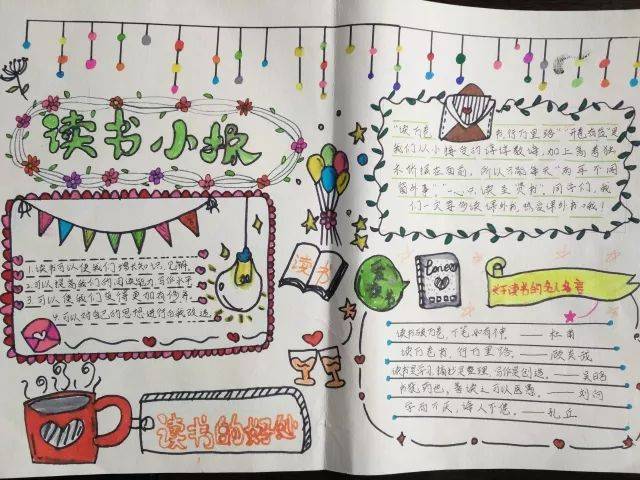 读书小报
1.读书可以使我们增长知识,见解。
2.可以提高我们的阅读能力,写作水平
3.可以使我们变得更加有修养。
4.可以对自己的思想进行自我改造。
读书
读书的好处
爱读书
"读万卷书,行万里路""开卷有益"是
我们从小接受的谆谆教诲,加上高考独
木桥摆在面前,所以只能每天"两耳不闻
窗外事","一心只读圣贤书",同学们,我
们一定要多读课外书,热爱课外书哦!
Love
关于读书的名人名言
读书破万卷,下笔如有神。——杜甫
读万卷书,行万里路。——
读书是学习,摘抄是整理,写作是创造。——吴晗
书犹药也,善读之可以医愚。——刘向
学而不厌,诲人不倦。——孔丘